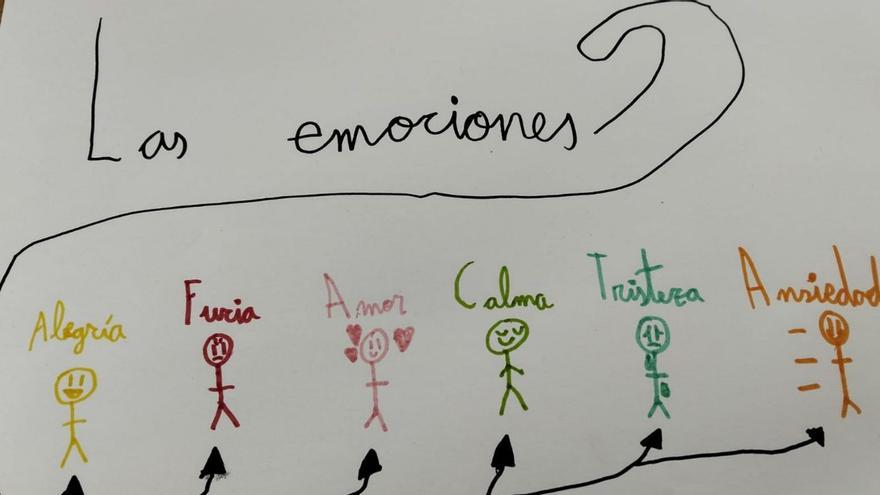 Las emociones
Alegría
Furia
Amor
Calma
Tristeza
Ansiedad